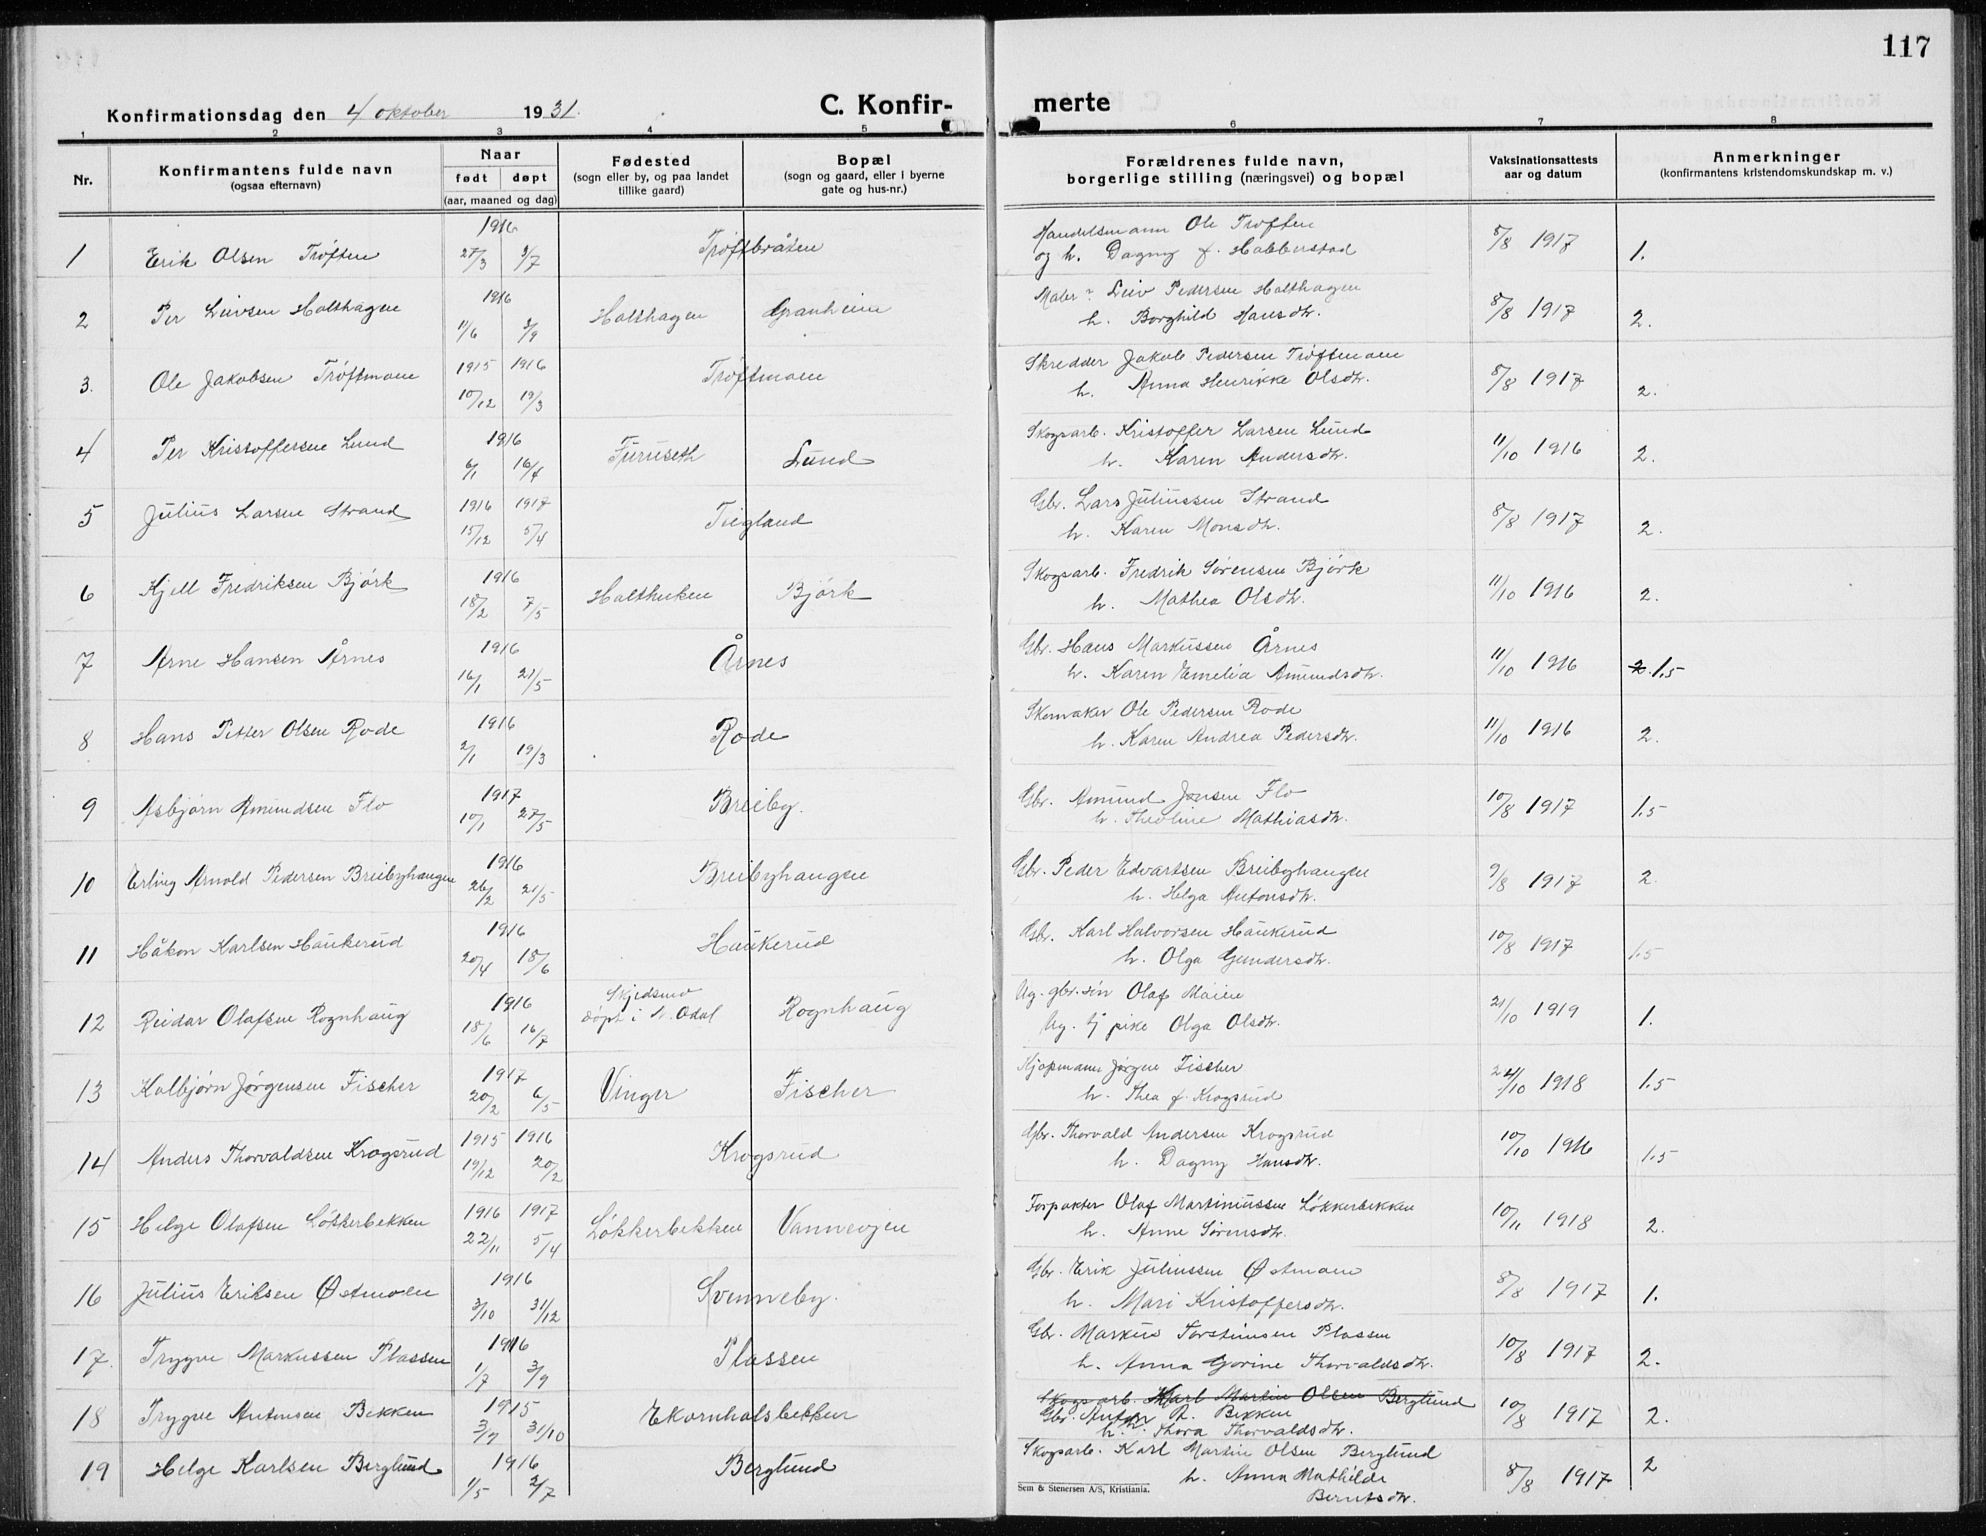 117
Konfirmationsdag den 4 oktober 1931. C. Konfir- merte
1 2 3 4 5 6 7 8
Nr.
Konfirmantens fulde navn
(ogsaa efternavn)
Naar
født døpt
(aar, maaned og dag)
Fødested
(sogn eller by, og paa landet
tillike gaard)
Bopæl
(sogn og gaard, eller i byerne
gate og hus-nr.)
Forældrenes fulde navn,
borgerlige stilling (næringsvei) og bopæl
Vaksinationsattests
aar og datum
Anmerkninger
(konfirmantens kristendomskundskap m. v.)
1 Erik Olsen Trøften 1916 27/3 3/7 Trøftbråten Handelsmann Ole Trøften
og h. Dagny f. Habberstad 8/8 1917 1.
2 Per Leivsen Holthagen 1916 11/6 3/9 Holthagen Granheim Maler Leiv Pedersen Holthagen
h. Borghild Hansdtr. 8/8 1917 2.
3. Ole Jakobsen Trøftmoen 1915 1916 10/12 19/3 Trøftmoen Skredder Jakob Pedersen Trøftmoen
h. Anna Henrikke Olsdtr. 8/8 1917 2.
4 Per Kristoffersen Lund 1916 6/1 16/4 Furuseth Lund Skogsarb. Kristoffer Larsen Lund
h. Karen Andersdtr. 11/10 1916 2.
5 Julius Larsen Strand 1916 1917 15/12 5/4 Tiegland Gbr. Lars Juliussen Strand
h. Karen Monsdtr. 8/8 1917 2.
6 Kjell Fredriksen Bjørk 1916 18/2 7/5 Holthuken Bjørk Skogsarb. Fredrik Sørensen Bjørk
h. Mathea Olsdtr. 11/10 1916 2.
7 Arne Hansen Årnes 1916 16/1 21/5 Årnes Gbr. Hans Markussen Årnes
h. Karen Emelia Amundsdtr. 11/10 1916 2. 1.5
8 Hans Petter Olsen Rode 1916 2/1 19/3 Rode Skomaker Ole Pedersen Rode
h. Karen Andrea Pedersdtr. 11/10 1916 2.
9 Asbjørn Amundsen Flo 1917 10/1 27/5 Breiby. Gbr. Amund Jensen Flo
h. Theoline Mathiasdtr. 10/8 1917 1.5
10 Erling Arnold Pedersen Breibyhaugen 1916 26/2 21/5 Breibyhaugen Gbr. Peder Edvartsen Breibyhaugen
h. Helga Antonsdtr. 9/8 1917 2.
11 Håkon Karlsen Haukerud 1916 20/4 18/6 Haukerud Gbr. Karl Halvorsen Haukerud
h. Olga Gundersdtr. 10/8 1917 1.5
12 Reidar Olafsen Rognhaug 1916 18/6 16/7 Skjedsmo
døpt i N. Odal Rognhaug Ug. gbr. sön Olaf Moien
Ug. tj pike Olga Olsdtr. 21/10 1919 1.
13 Kolbjørn Jørgensen Fischer 1917 20/2 6/5 Vinger Fischer Kjøpmann Jørgen Fischer
h. Thea f. Krogsrud 24/10 1918 1.5
14 Anders Thorvaldsen Krogsrud 1915 1916 19/12 20/2 Krogsrud Gbr. Thorvald Andersen Krogsrud
h. Dagny Hansdtr. 10/10 1916 1.5
15 Helge Olafsen Løkkerbekken 1916 1917 22/11 5/4 Løkkerbekken Vannevjen Forpakter Olaf Martinussen Løkkerbekken
h. Anne Sørensdtr. 10/11 1918 2.
16 Julius Eriksen Østmoen 1916 3/10 31/12 Svenneby. Gbr. Erik Juliussen Østmoen
h. Mari Kristoffersdtr. 8/8 1917 1.
17. Trygve Markussen Plassen 1916 1/7 3/9 Plassen Gbr. Markus Torstensen Plassen
h. Anna Gorine Thorvaldsdtr. 10/8 1917 2.
18 Trygve Antonsen Bekken 1915 3/7 31/10 Ekornholsbekken Skogsarb. Karl Martin Olsen Berglund
Gbr. Anton A. Bekken
h. Thora Thorvaldsdtr. 10/8 1917 2.
19 Helge Karlsen Berglund 1916 1/5 2/7 Berglund Skogsarb. Karl Martin Olsen Berglund
h. Anna Mathilde
Berntsdtr. 8/8 1917 2
Sem & Stenersen A/S, Kristiania.